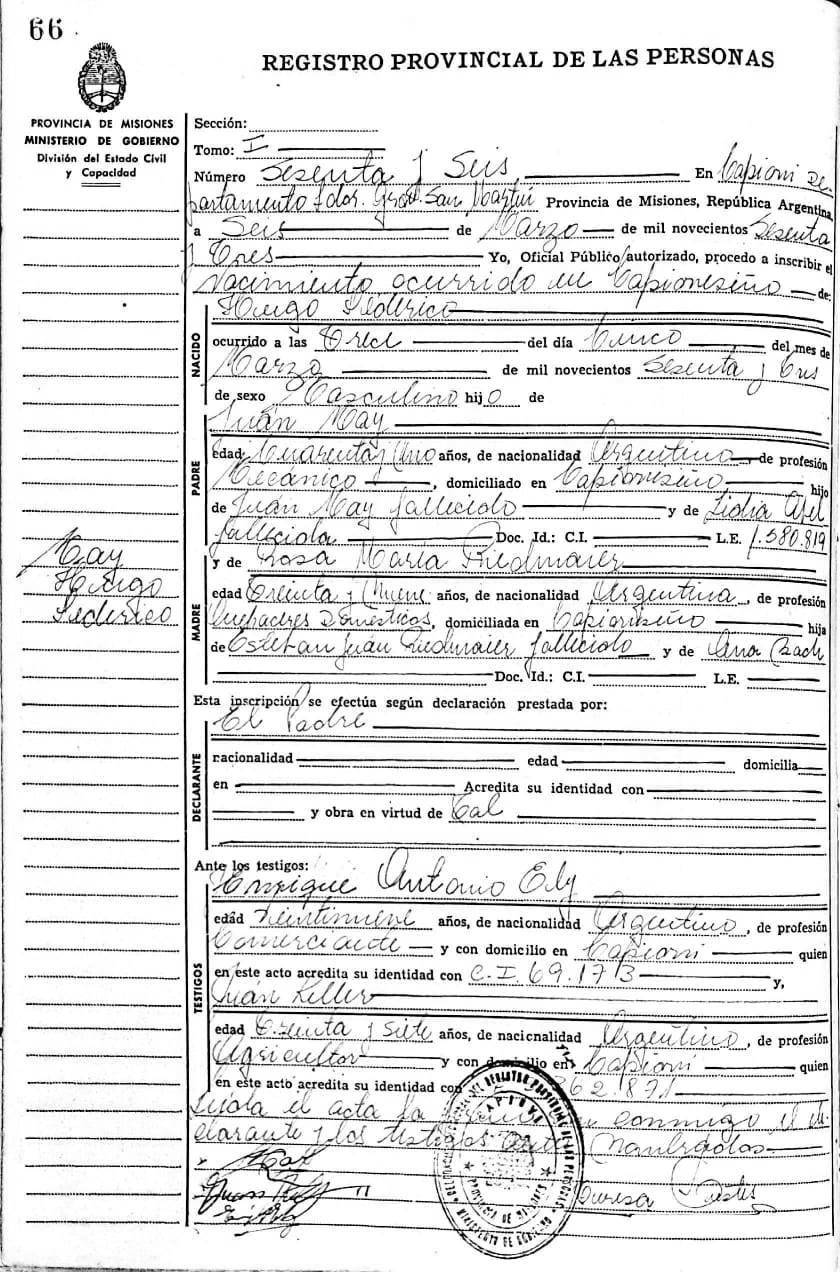 66
REGISTRO PROVINCIAL DE LAS PERSONAS
PROVINCIA DE MISIONES
MINISTERIO DE GOBIERNO
División del Estado Civil
y Capacidad
Sección:
Tomo: I
Número Sesenta y Seis En Capioví De-
partamento Ldor. Gral. San Martín Provincia de Misiones, República Argentina,
a Seis de Marzo de mil novecientos Sesenta
y Tres Yo, Oficial Público autorizado, procedo a inscribir el
Nacimiento ocurrido en Capioviseño de:
NACIDO
Hugo Federico
ocurrido a las Trece del día Cinco del mes de
Marzo de mil novecientos Sesenta y Tres
de sexo Masculino hijo de
PADRE
Juán May
edad Cuarenta y Uno años, de nacionalidad Argentino de profesión
Mecánico, domiciliado en Capioviseño hijo
de Juán May fallecido y de Lidia
fallecida Doc. Id.: C.I. L.E. 1.580.819
MADRE
y de Rosa María Riedmaier
edad Treinta y Nueve años, de nacionalidad Argentina, de profesión
Quehaceres Domésticos, domiciliada en Capioviseño hija
de Estéban Juán Riedmaier fallecido y de Ana Bach
Doc. Id.: C.I. L.E.
May
Hugo
Federico
Esta inscripción se efectúa según declaración prestada por:
El Padre
DECLARANTE
nacionalidad edad domicilia
en Acredita su identidad con
y obra en virtud de Tal
Ante los testigos:
TESTIGOS
Enrique Antonio Edy
edad Veintinueve años, de nacionalidad Argentino, de profesión
Comerciante y con domicilio en Capioví quien
en este acto acredita su identidad con C.I. 69.173 y,
Juán Keller
edad Treinta y Siete años, de nacionalidad Argentino, de profesión
Agricultor y con domicilio en Capioví quien
en este acto acredita su identidad con 362.871
Leída el acta la conmigo el de-
clarante y los testigos nombrados
May
PROVINCIA DE MISIONES
MINISTERIO DE GOBIERNO